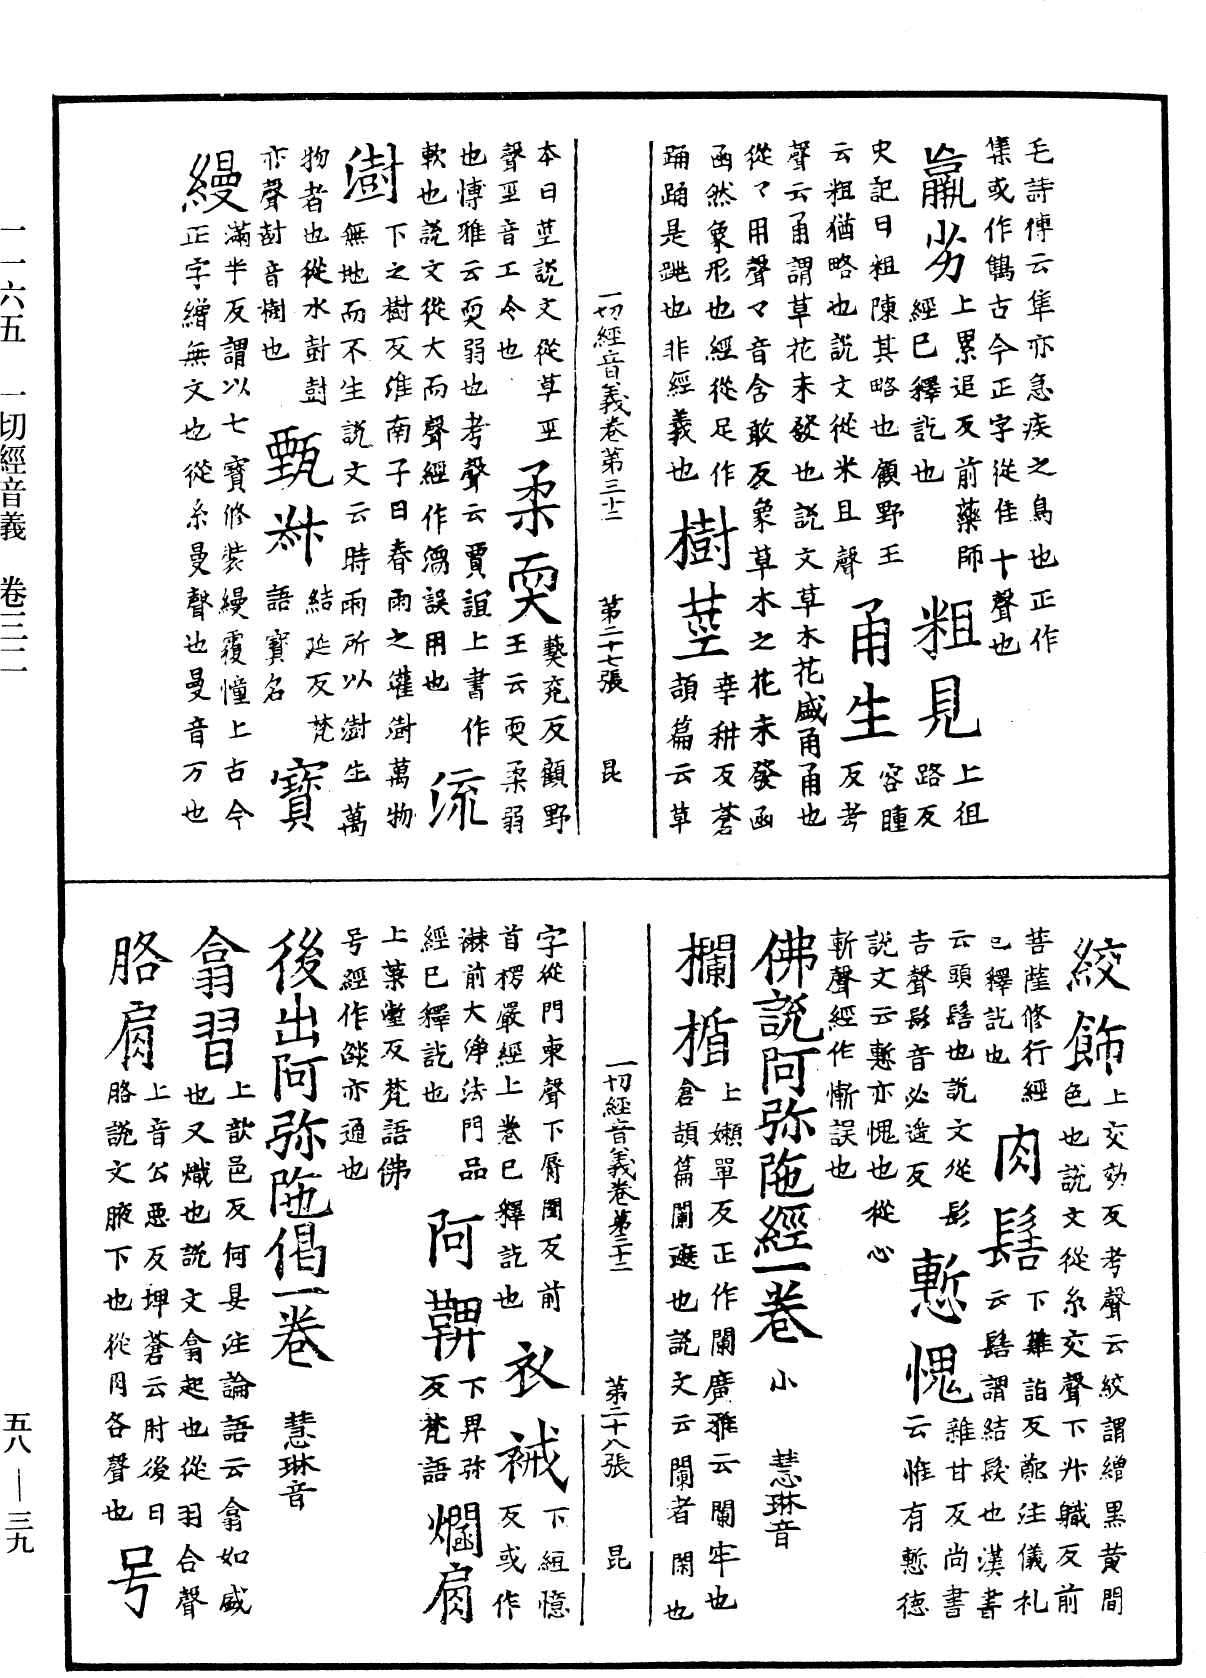 毛詩傳云隼亦急疾之鳥也正作
集或作鵻古今正字從隹十聲也
羸劣 上累追反前藥師
經已釋訖也
粗見 上徂
路反
史記曰粗陳其略也顧野王
云粗猶略也說文從米且聲
甬生 容腫
反考
聲云甬謂草花未發也說文草木花盛甬甬也
從𢎘用聲𢎘音含敢反象草木之花未發函
函然象形也經從足作
踊踊是跳也非經義也
樹莖 幸耕反蒼
頡篇云草
一切經音義卷第三十二 第二十七張 昆
本曰莖說文從草巠
聲巠音工令也
柔耎 蕠兖反顧野
王云耎柔弱
也博雅云耎弱也考聲云賈誼上書作
軟也說文從大而聲經作濡誤用也
流
澍 下之樹反淮南子曰春雨之灌澍萬物
無地而不生說文云時雨所以澍生萬
物者也從水尌尌
亦聲尌音樹也
甄𣑭 結延反梵
語寶名
寶
縵 滿半反謂以七寶修裝縵覆幢上古今
正字繒無文也從糸曼聲也曼音万也
絞飾 上交効反考聲云絞謂繒黑黃間
色也說文從糸交聲下𣑭職反前
菩薩修行經
已釋訖也
肉髻 下雞詣反鄭注儀礼
云髻謂結髮也漢書
云頭髻也說文從髟
吉聲髟音必遙反
慙愧 雜甘反尚書
云惟有慙德
說文云慙亦愧也從心
斬聲經作慚誤也
佛說阿弥陁經一卷 小 慧琳音
欄楯 上嬾單反正作闌廣雅云闌牢也
倉頡篇闌遮也說文云闌者閑也
一切經音義卷第三十二 第二十八張 昆
字從門柬聲下脣閏反前
首楞嚴經上卷已釋訖也
衣裓 下絙憶
反或作
㴑前大淨法門品
經已釋訖也
阿鞞 下畀弥
反梵語
燗肩
上葉壍反梵語佛
号經作燄亦通也
後出阿弥陁偈一卷 慧琳音
翕習 上歆邑反何晏注論語云翕如盛
也又熾也說文翕起也從羽合聲
胳肩 上音公惡反埤蒼云肘後曰
胳說文腋下也從肉各聲也
号
一一六五 一切經音義 卷三二
五八—三九